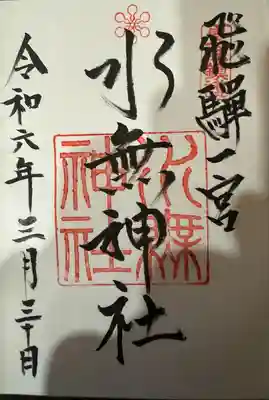 飛騨一宮
水無神社
令和六年三月三十日
水無
神社